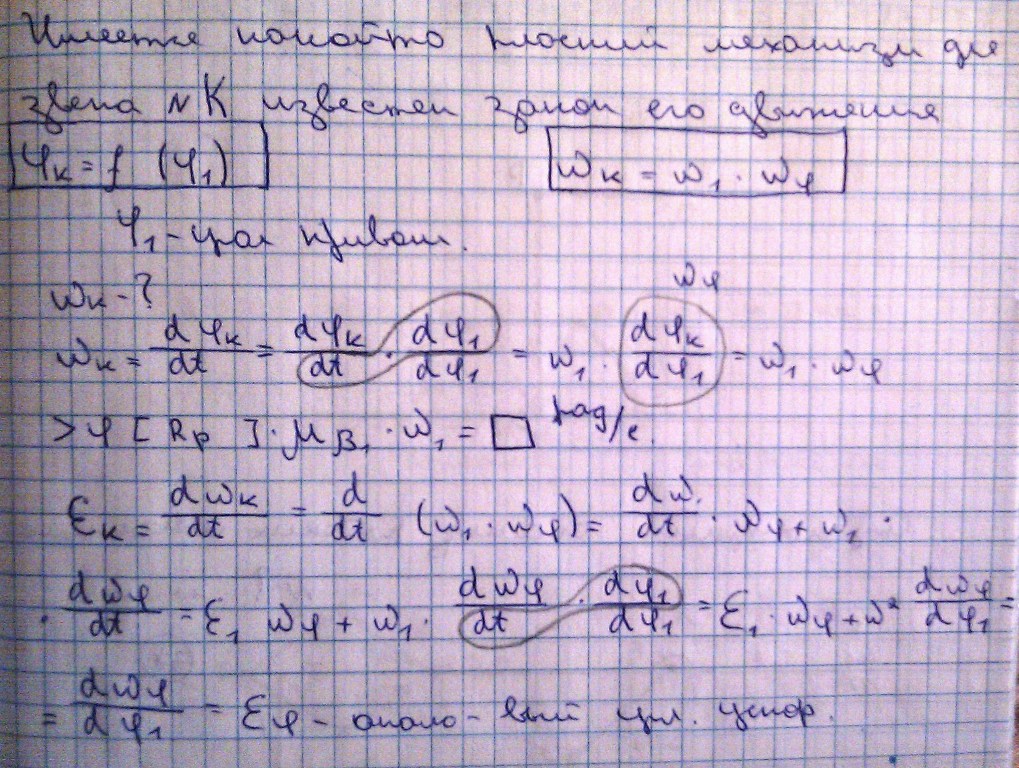 Имеется какой-то плоский механизм для
звена N K известен закон его движения
φк = f (φ1)    ωк = ω1 · ωφ
φ1 - угол кривош.
ωк - ?
ωк = dφк/dt = dφк/dt · dφ1/dφ1 = ω1 · dφк/dφ1 = ω1 · ωφ
ωφ
[ ] · μ · ω1 = □ рад/с.
εк = dωк/dt = d/dt (ω1 · ωφ) = dω/dt · ωφ + ω1 ·
· dωφ/dt = ε1 ωφ + ω1 · dωφ/dt · dφ1/dφ1 = ε1 · ωφ + ω² dωφ/dφ1 =
= dωφ/dφ1 = εφ - угл. ускор.